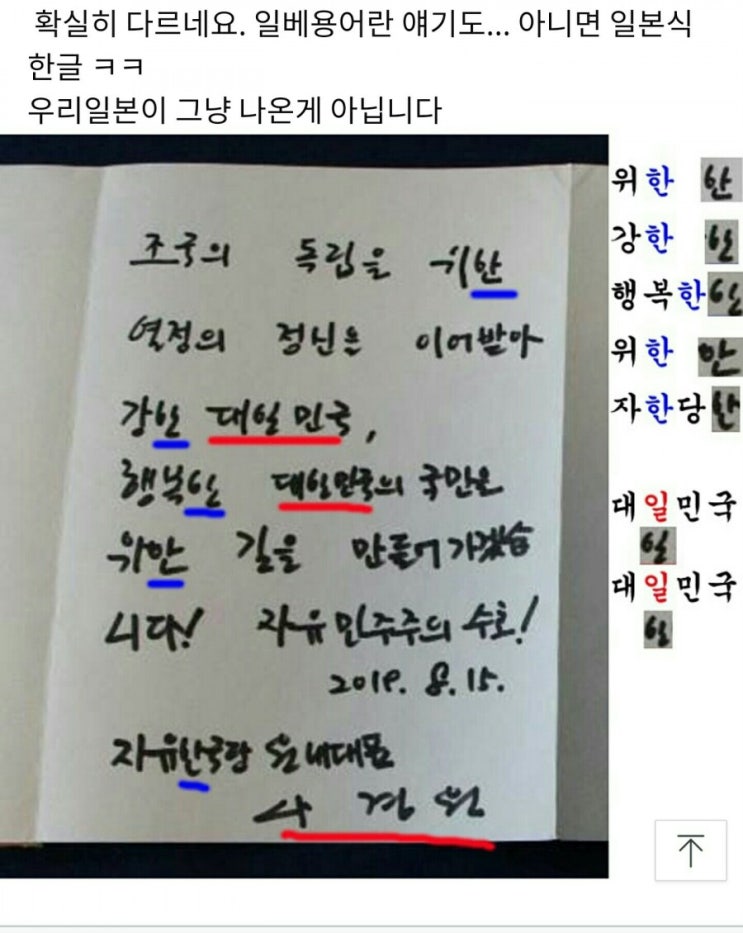 확실히 다르네요. 일베용어란 얘기도... 아니면 일본식
한글 ㅋㅋ
우리일본이 그냥 나온게 아닙니다
조국의 독립을 위한
열정의 정신을 이어받아
강한 대일민국,
행복한 대일민국의 국민을
위한 길을 만들어가겠습
니다! 자유민주주의 수호!
2019. 8. 15.
자유한국당 원내대표
나 경 원
위한 한
강한 한
행복한 한
위한 한
자한당 한
대일민국
일
대일민국
일